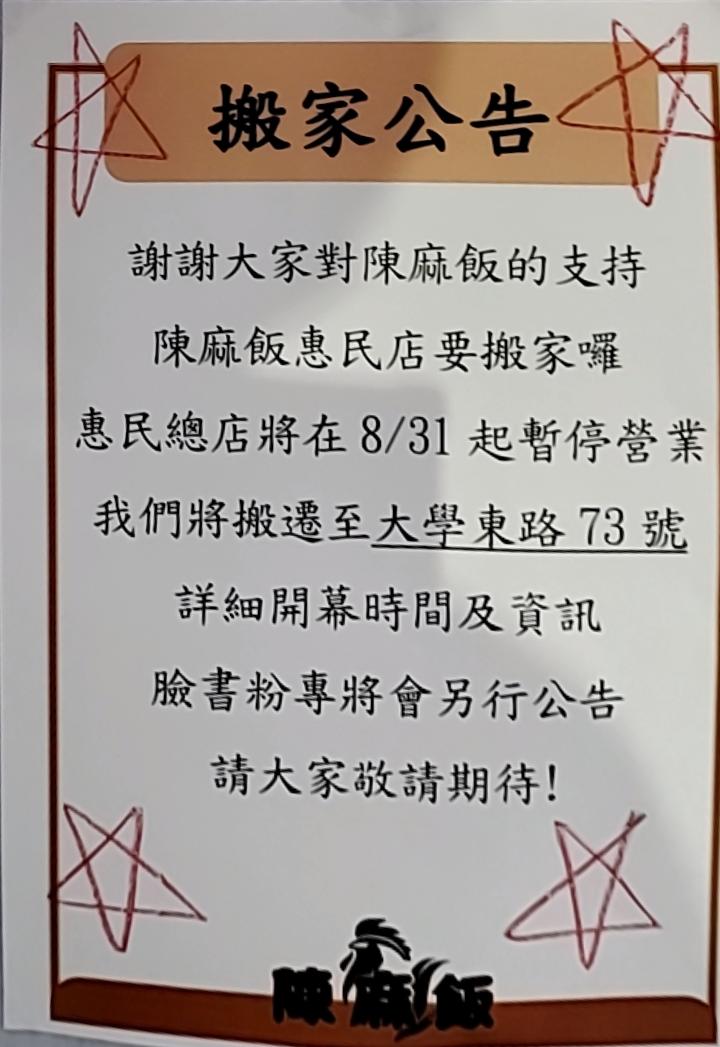 搬家公告
謝謝大家對陳麻飯的支持
陳麻飯惠民店要搬家囉
惠民總店將在 8/31 起暫停營業
我們將搬遷至大學東路 73 號
詳細開幕時間及資訊
臉書粉專將會另行公告
請大家敬請期待!
陳麻飯